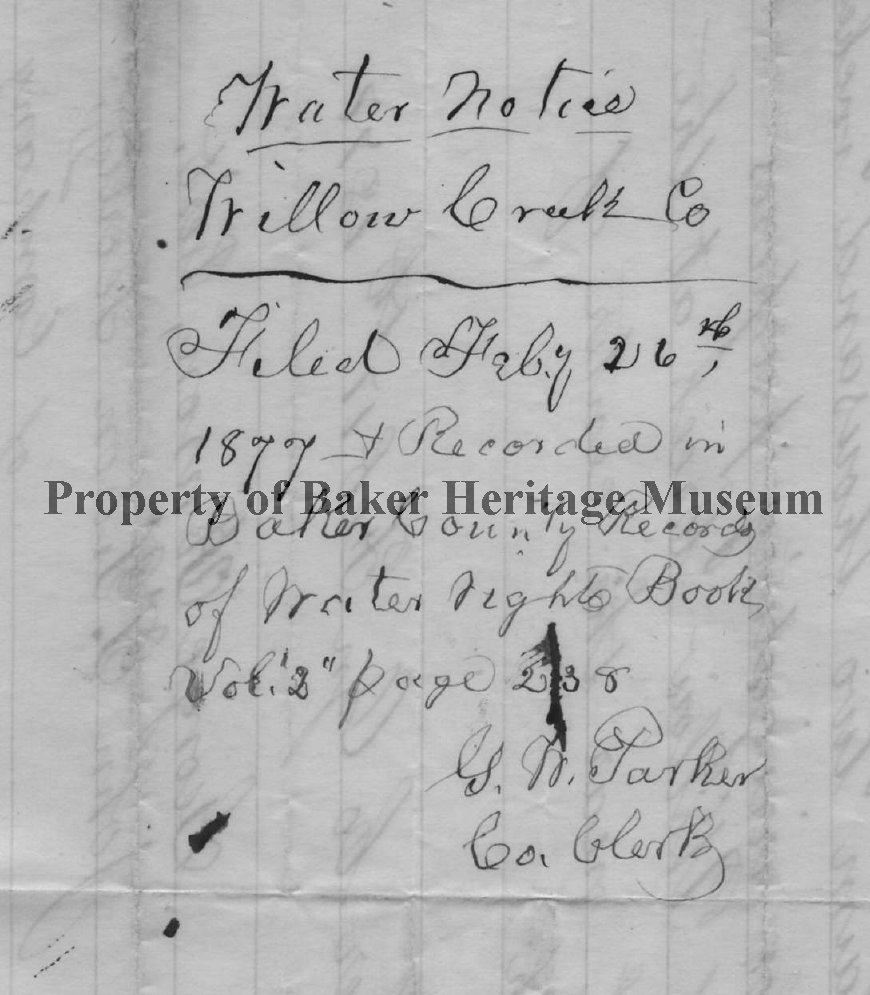 Water Notice
Willow Creek Co
Filed Feb.y 26th,
1877 & Recorded in
Property of Baker Heritage Museum
Baker County Records
of Water rights Book
Vol. "2" page 238
G. W. Parker
Co. Clerk